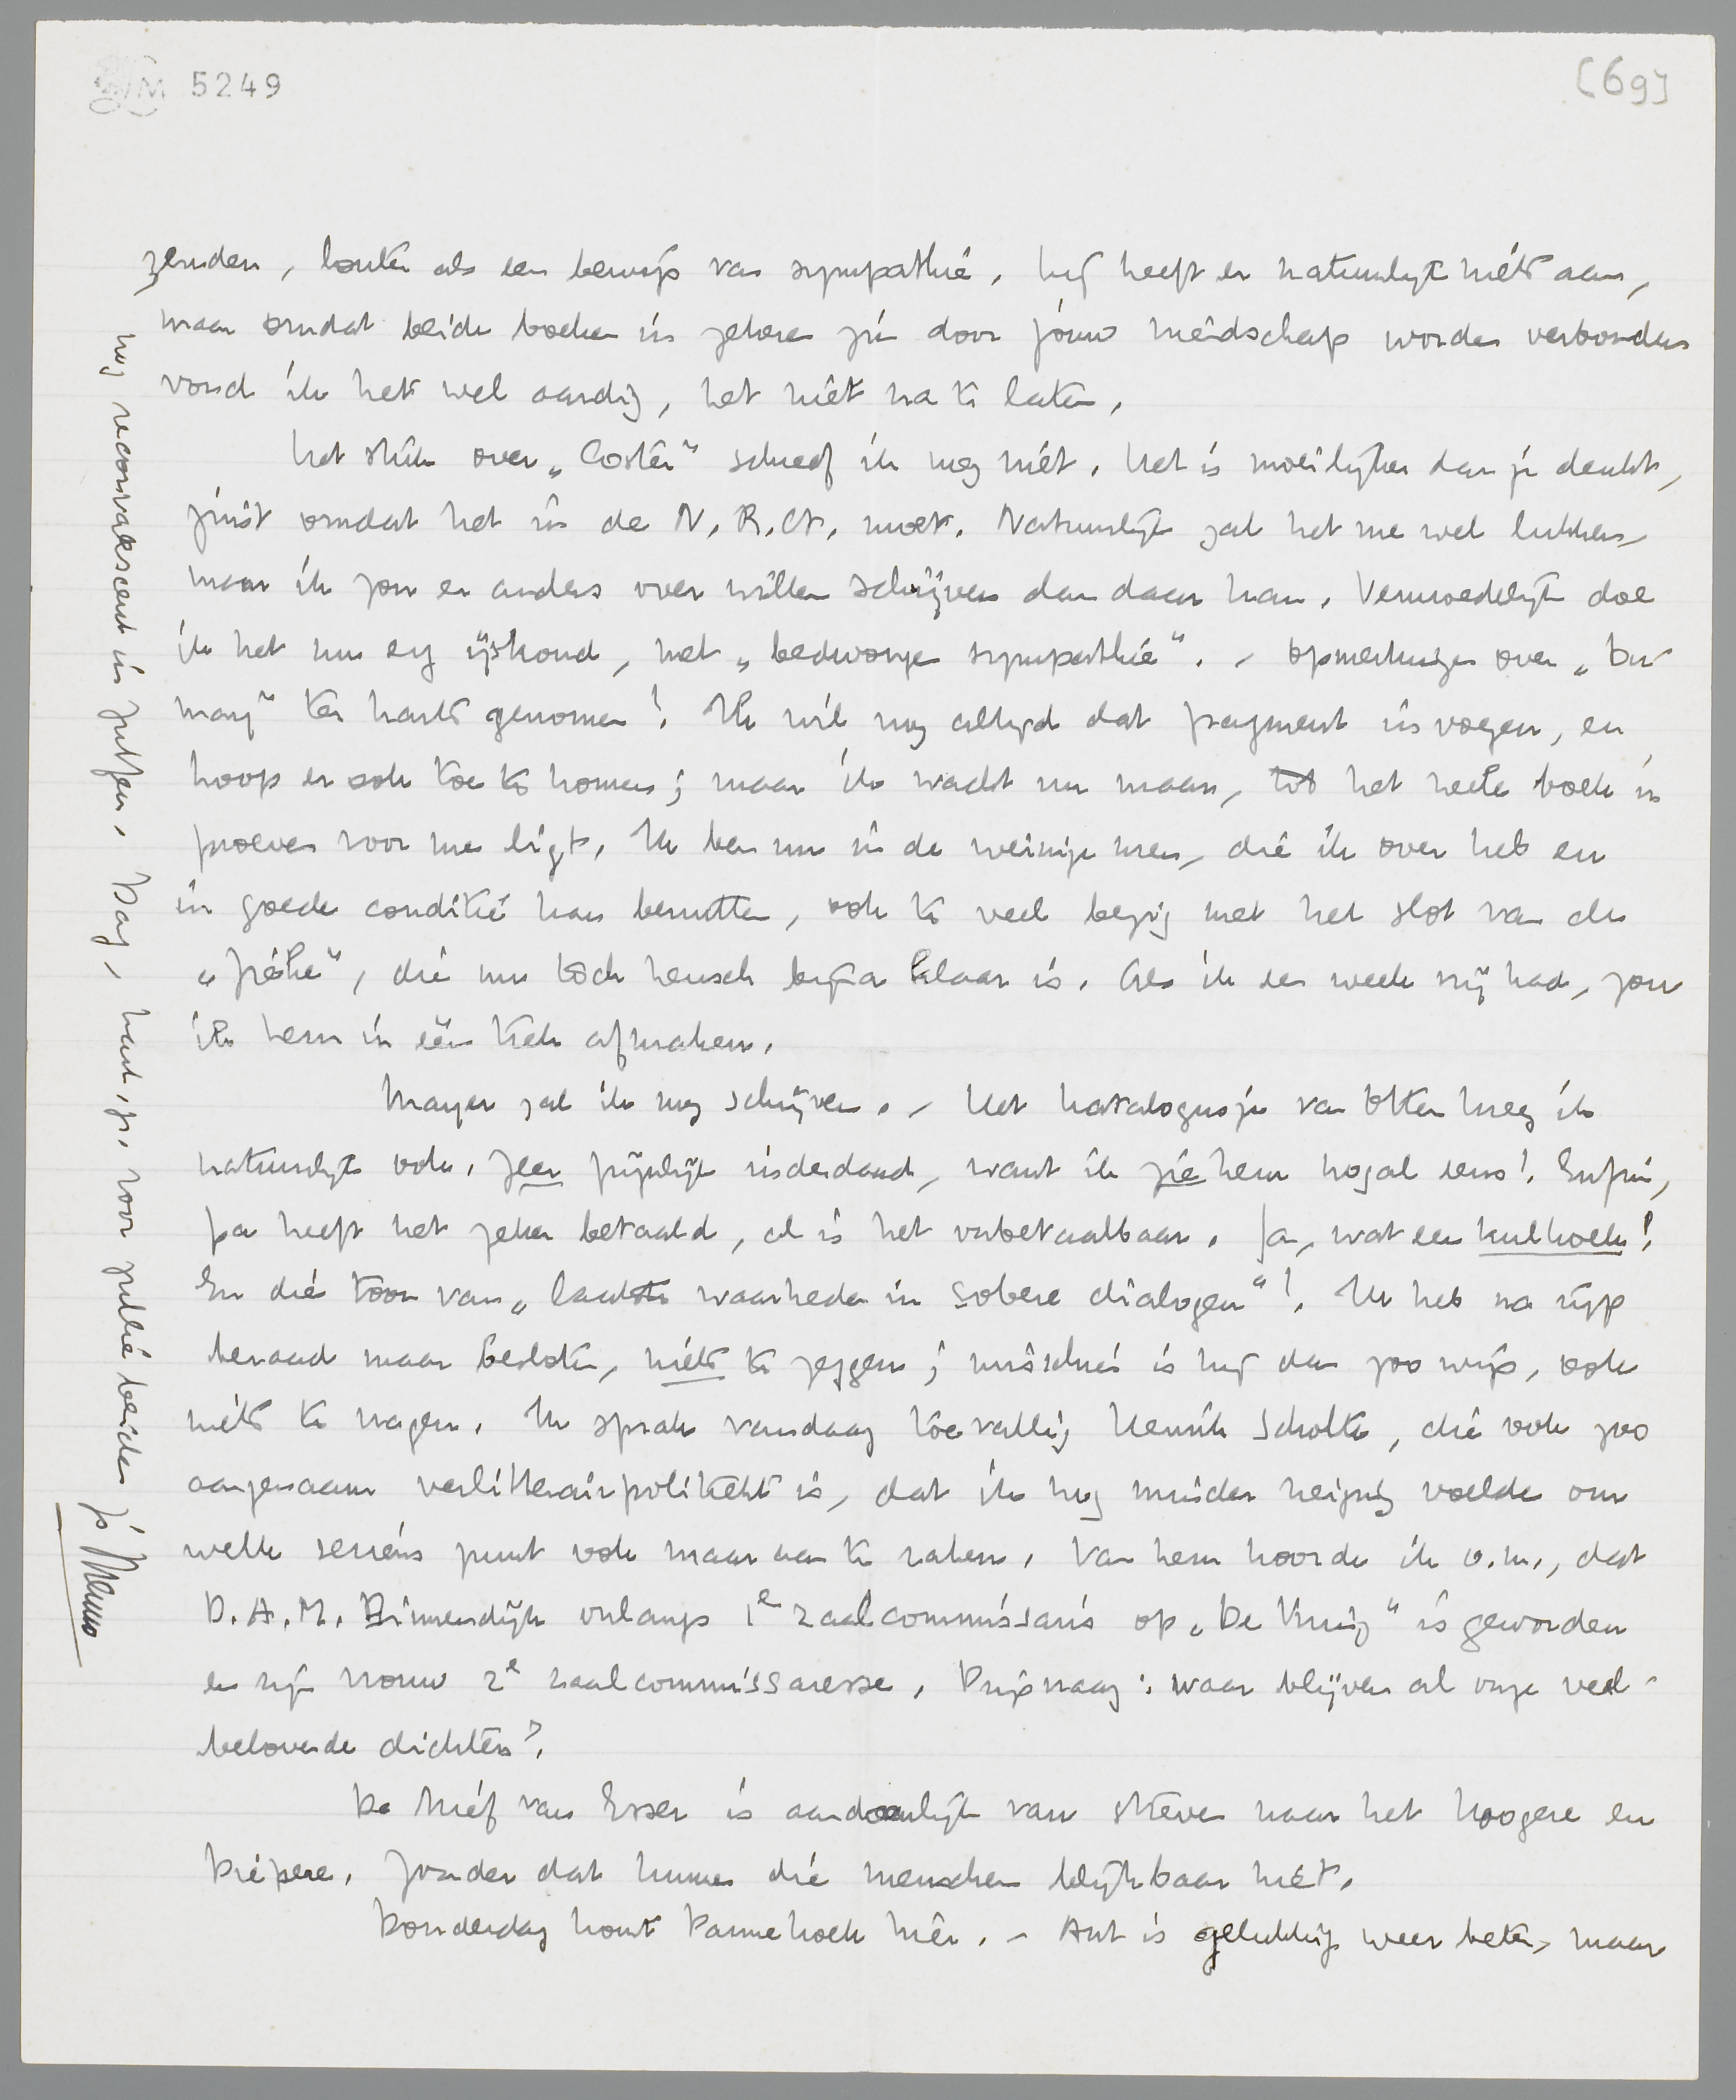 LM 5249
[69]
zenden, louter als een bewijs van sympathie. Hij heeft er natuurlijk niets aan,
maar omdat beide boeken in zekeren zin door jóuw meidschap worden verbonden
vond ik het wel aardig, het niet na te laten.
Het stuk over „Coster” schreef ik nog niet. Het is moeilijker dan je denkt,
juist omdat het in de N.R.Ct. moet. Natuurlijk zal het me wel lukken,
maar ik zou er anders over willen schrijven dan daar kan. Vermoedelijk doe
ik het nu erg ijskoud, met „bedwongen sympathie”. – Opmerkingen over „Du
" ter harte genomen! Ik wil nog altijd dat fragment invoegen, en
hoop er ook toe te komen; maar ik wacht nu maar, tot het heele boek in
proeven voor me ligt. Ik ben nu in de weinige uren, die ik over heb en
in goede conditie kan benutten, ook te veel bezig met het slot van de
„Fiélie”, die nu toch heusch bijna klaar is. Als ik een week vrij had, zou
ik hem in één trek afmaken.
Mayer zal ik nog schrijven. – Het katalogusje van Otten kreeg ik
natuurlijk ook. Zeer pijnlijk inderdaad, want ik zie hem nogal eens! Enfin,
pa heeft het zeker betaald, al is het onbetaalbaar. Ja, wat een kulkoek!
En die toon van „laatste waarheden in sobere dialogen”! Ik heb na rijp
beraad maar besloten, niets te zeggen; misschien is hij dan zoo wijs, ook
niets te vragen. Ik sprak vandaag toevallig Henrik Scholte, die ook zoo
aangenaam verlitterairpolitiekt is, dat ik nog minder neiging voelde om
welk serieus punt ook maar aan te raken. Van hem hoorde ik o.m., dat
D.A.M. Binnendijk onlangs 1e zaalcommissaris op „De Kring” is geworden
en zijn vrouw 2e zaalcommissaresse. Prijsvraag: waar blijven al onze veel-
belovende dichters?
De brief van Esser is aandoenlijk van streven naar het hoogere en
diepere. Zonder dat kunnen die menschen blijkbaar niet.
Donderdag komt Pannekoek hier. – Ant is gelukkig weer beter, maar
nog reconvalescent in Zutfen. Dag, hart. gr. voor jullie beiden je Menno